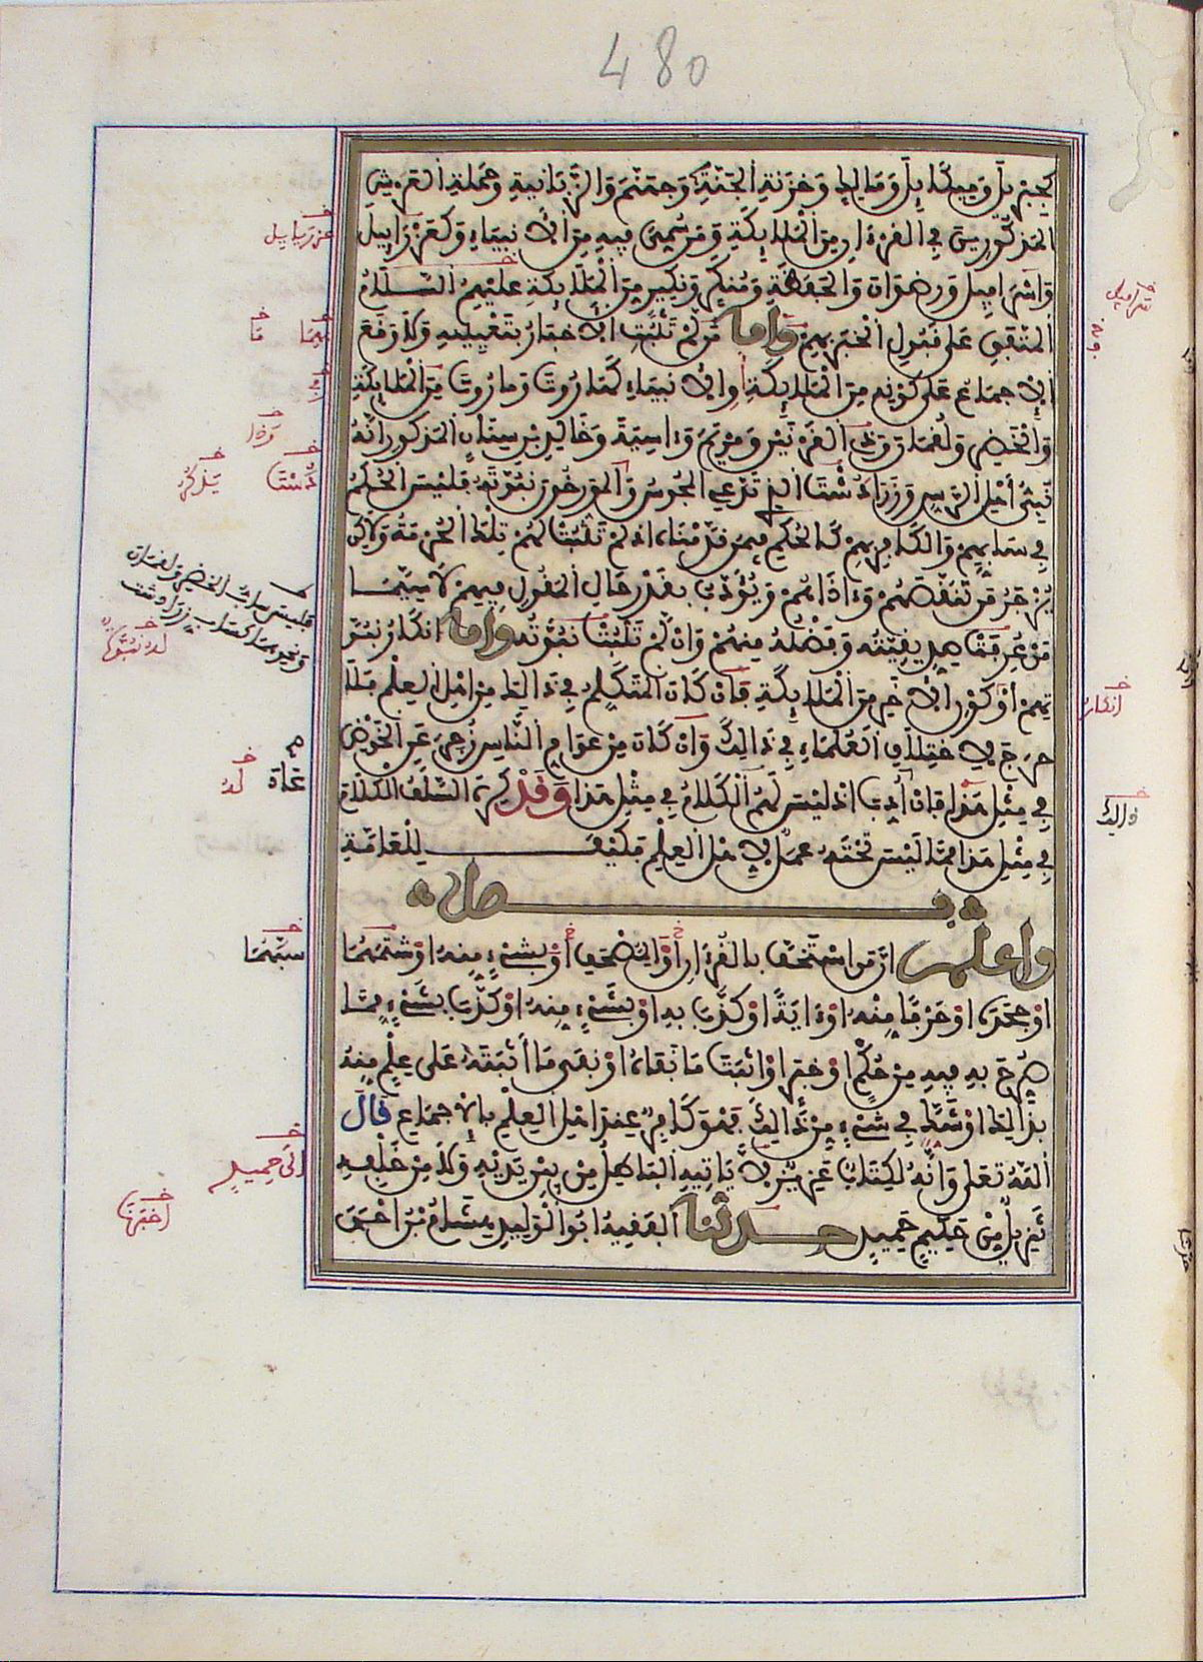 480
كجبريل وميكايل ومالك وخزنة الجنة وجهنم والزبانية وحملة العرش
المذكورين في القرءان من الملائكة ومن سمي فيه من الأنبياء وكعزرايل
عزريايل
واسرافيل ورضوان والحفظة ومنكر ونكير من الملائكة عليهم السلام
المتفق على قبول الخبر بهم واما من لم تثبت الاخبار بتعيينه ولا وقع
فيما
ما
الاجماع على كونه من الملائكة او الانبياء كهاروت وماروت من الملائكة
والخضر ولقمن وذي القرنين ومريم وءاسية وخالد بن سنان المذكور انه
نبي أهل الرس وزرادشت الذي تدعي المجوس والمورخون نبوته فليس الحكم
دشت
يذكر
في سابهم والكافر بهم كالحكم فيمن قدمناه اذ لم تثبت لهم تلك الحرمة ولاكن
يزجر من تنقصهم وءاذاهم ويؤدب بقدر حال المقول فيهم لا سيما
من عرفت صديقيته وفضله منهم وان لم تثبت نبوته واما انكار نبو
تهم أو كون الاخر من الملائكة فان كان المتكلم في ذالك من اهل العلم فلا
انكار
حرج لاختلاف العلماء في ذالك وان كان من عوام الناس زجر عن الخوض
في مثل هذا فان عاد أدب اذ ليس لهم الكلام في مثل هذا وقد كره السلف الكلام
عاد
له
ذالك
في مثل هذا مما ليس تحته عمل لاهل العلم فكيف للعامة
فصل
واعلم ان من استخف بالقرءان أو المصحف أو بشيء منه او سبهما
سبهما
او جحده او حرفا منه او ءاية او كذب به او بشيء منه او كذب بشيء مما
صرح به فيه من حكم او خبر او اثبت ما نفاه او نفى ما أثبته على علم منه
بذالك او شك في شيء من ذالك فهو كافر عند اهل العلم بالاجماع قال
الله تعلى وانه لكتاب عزيز لا ياتيه الباطل من بين يديه ولا من خلفه
الى حميد
تنزيل من حكيم حميد حدثنا الفقيه ابو الوليد هشام بن احمد
اخبرنا